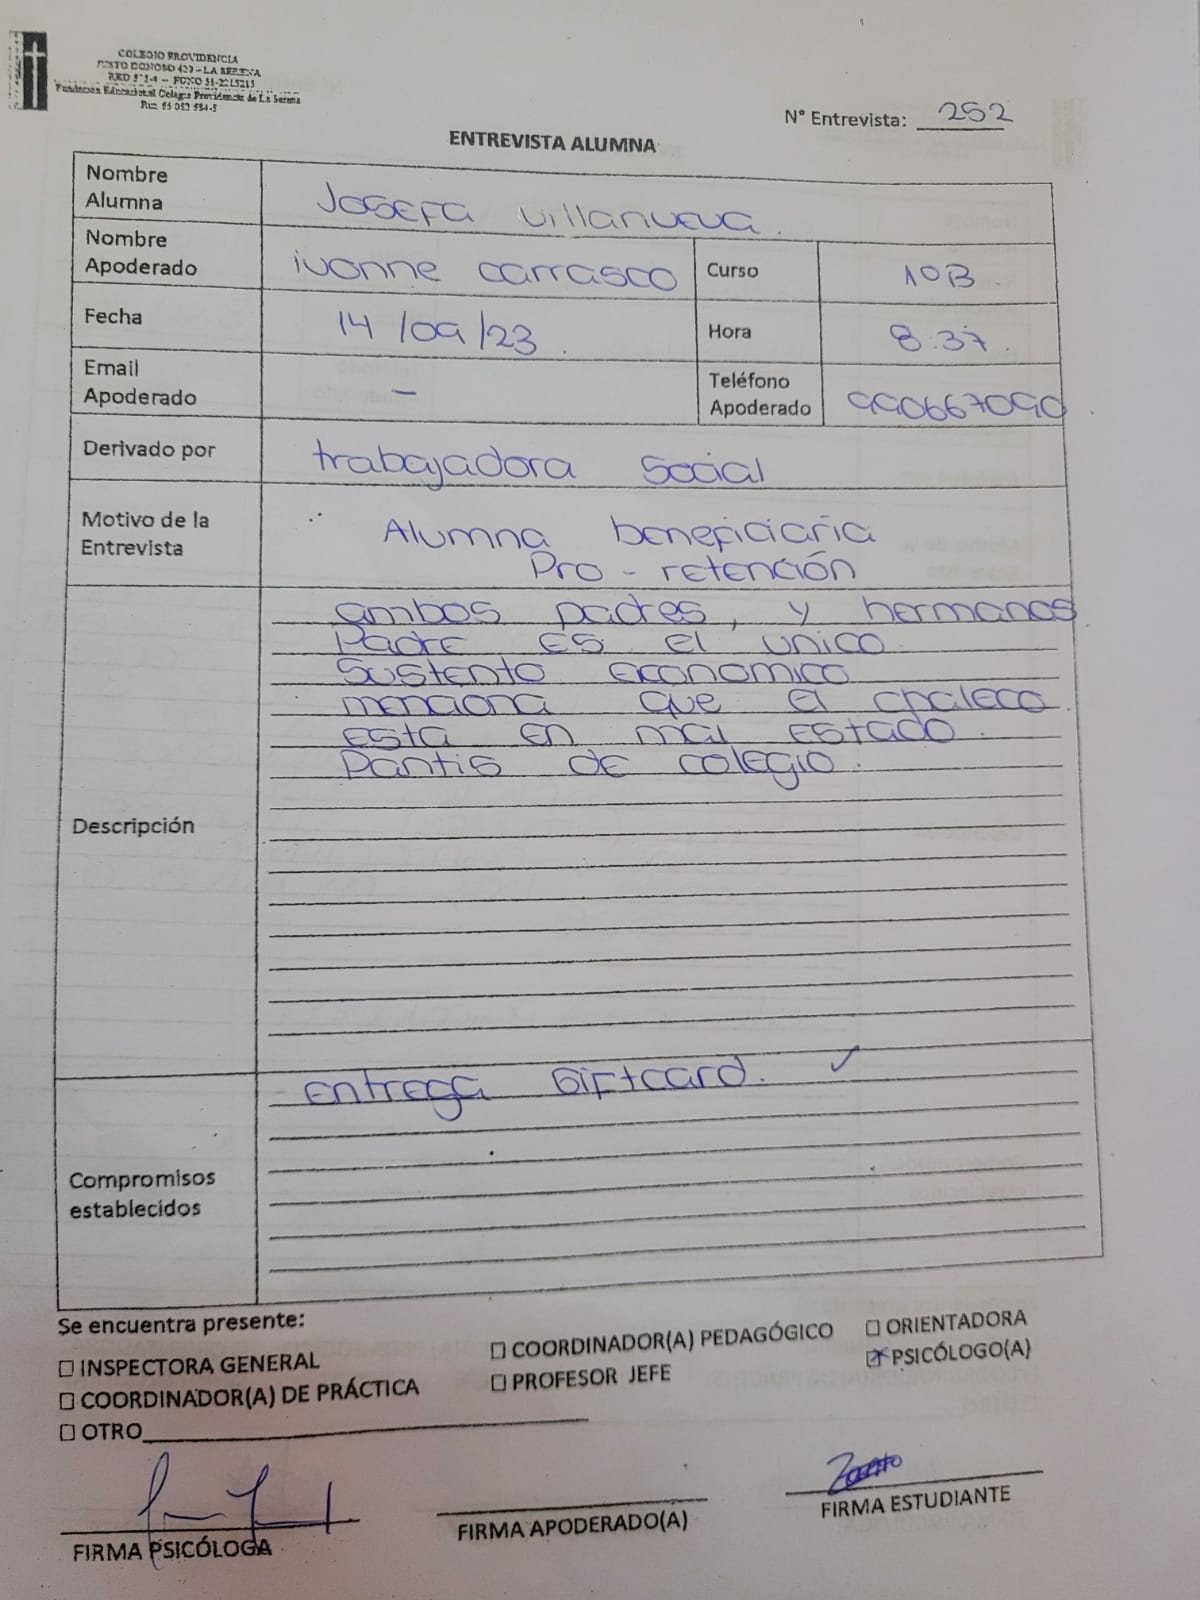 COLEGIO PROVIDENCIA
JUSTO DONOSO 420 - LA SERENA
Fundación Educacional Colegio Providencia de La Serena
N° Entrevista: 252
ENTREVISTA ALUMNA
Nombre Alumna Josefa Villanueva.
Nombre Apoderado ivonne carrasco Curso 1°B
Fecha 14/09/23. Hora 8:37.
Email Apoderado - Teléfono Apoderado 990667090
Derivado por trabajadora Social
Motivo de la Entrevista Alumna beneficiaria
Pro-retención
Descripción
ambos padres, y hermanos
Padre es el unico
Sustento economico
menciona que el chaleco.
esta en mal estado.
Pantis de colegio.
Compromisos establecidos
Entrega Giftcard. ✓
Se encuentra presente:
☐ INSPECTORA GENERAL ☐ COORDINADOR(A) PEDAGÓGICO ☐ ORIENTADORA
☐ COORDINADOR(A) DE PRÁCTICA ☐ PROFESOR JEFE ☒ PSICÓLOGO(A)
☐ OTRO
FIRMA PSICÓLOGA FIRMA APODERADO(A) FIRMA ESTUDIANTE